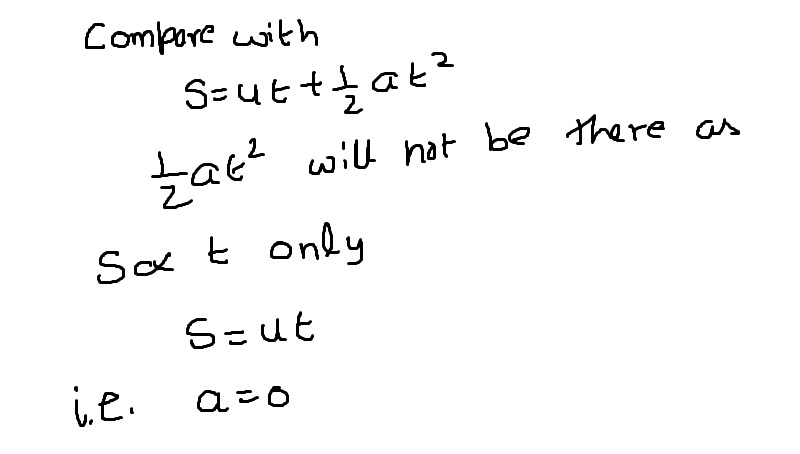 Compare with
S=ut+½at²
½at² will not be there as
S∝ t only
S=ut
i.e. a=0